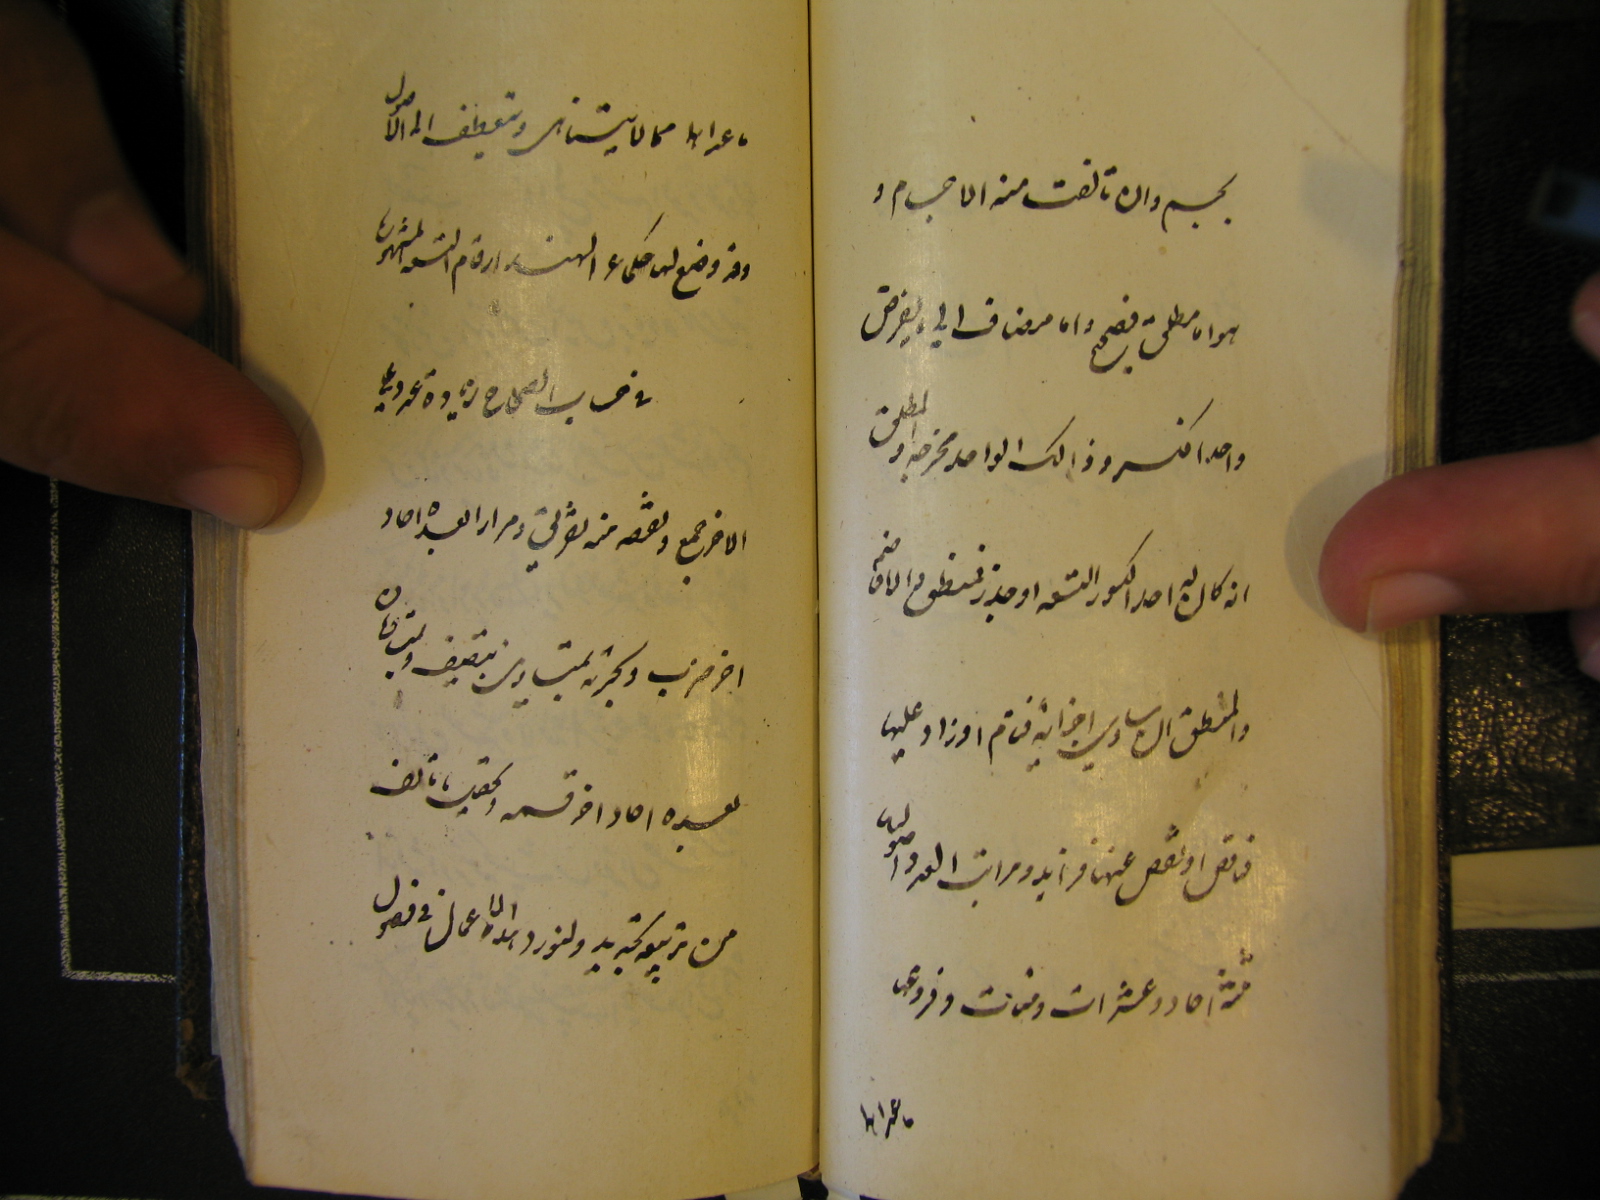 بجسم وان تألفت منه الاجسام و
هو اما مطلق فصحيح واما مضاف الى ما يفرض
واحدا فكسر وذالك الواحد مخرجه والمطلق
انه كان له احد الكسور التسعه او جذر فمنطق والا فاصم
والمنطق ان ساوى اجزائه فتام او زاد عليها
فناقص او نقص عنها فزايد ومراتب العدد اصولها
ثلثة احاد وعشرات ومئات وفروعها
ما عداها
ما عداها مما لا يتناهى وينعطف الى الاصول
وقد وضع لها حكماء الهند ارقام التسعه المشهوره
فى حساب الصحاح زيادة عدد على
الاخر جمع ونقصه منه تفريق ومرارا بعده احاد
اخر ضرب وتجزيته بمتساويين تنصيف وبمتساويات
بعده احاد اخر قسمه وتحصيل ما تألف
من تربيعه تجذير ولنورد هذه الاعمال فى فصول